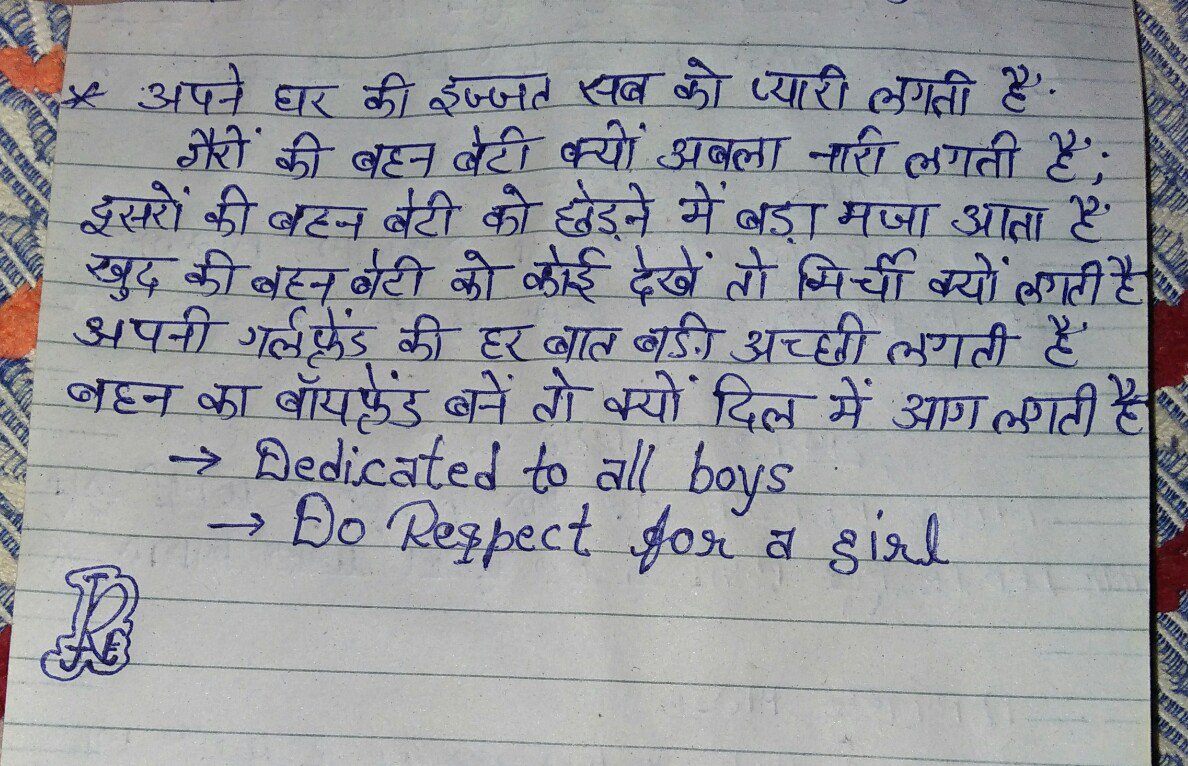 * अपने घर की इज्जत सब को प्यारी लगती है.
गैरों की बहन बेटी क्यों अबला नारी लगती है;
दुसरों की बहन बेटी को छेड़ने में बड़ा मजा आता है
खुद की बहन बेटी को कोई देखें तो मिर्ची क्यों लगती है
अपनी गर्लफ्रेंड की हर बात बड़ी अच्छी लगती है
बहन का बॉयफ्रेंड बनें तो क्यों दिल में आग लगती है
→ Dedicated to all boys
→ Do Respect for a girl